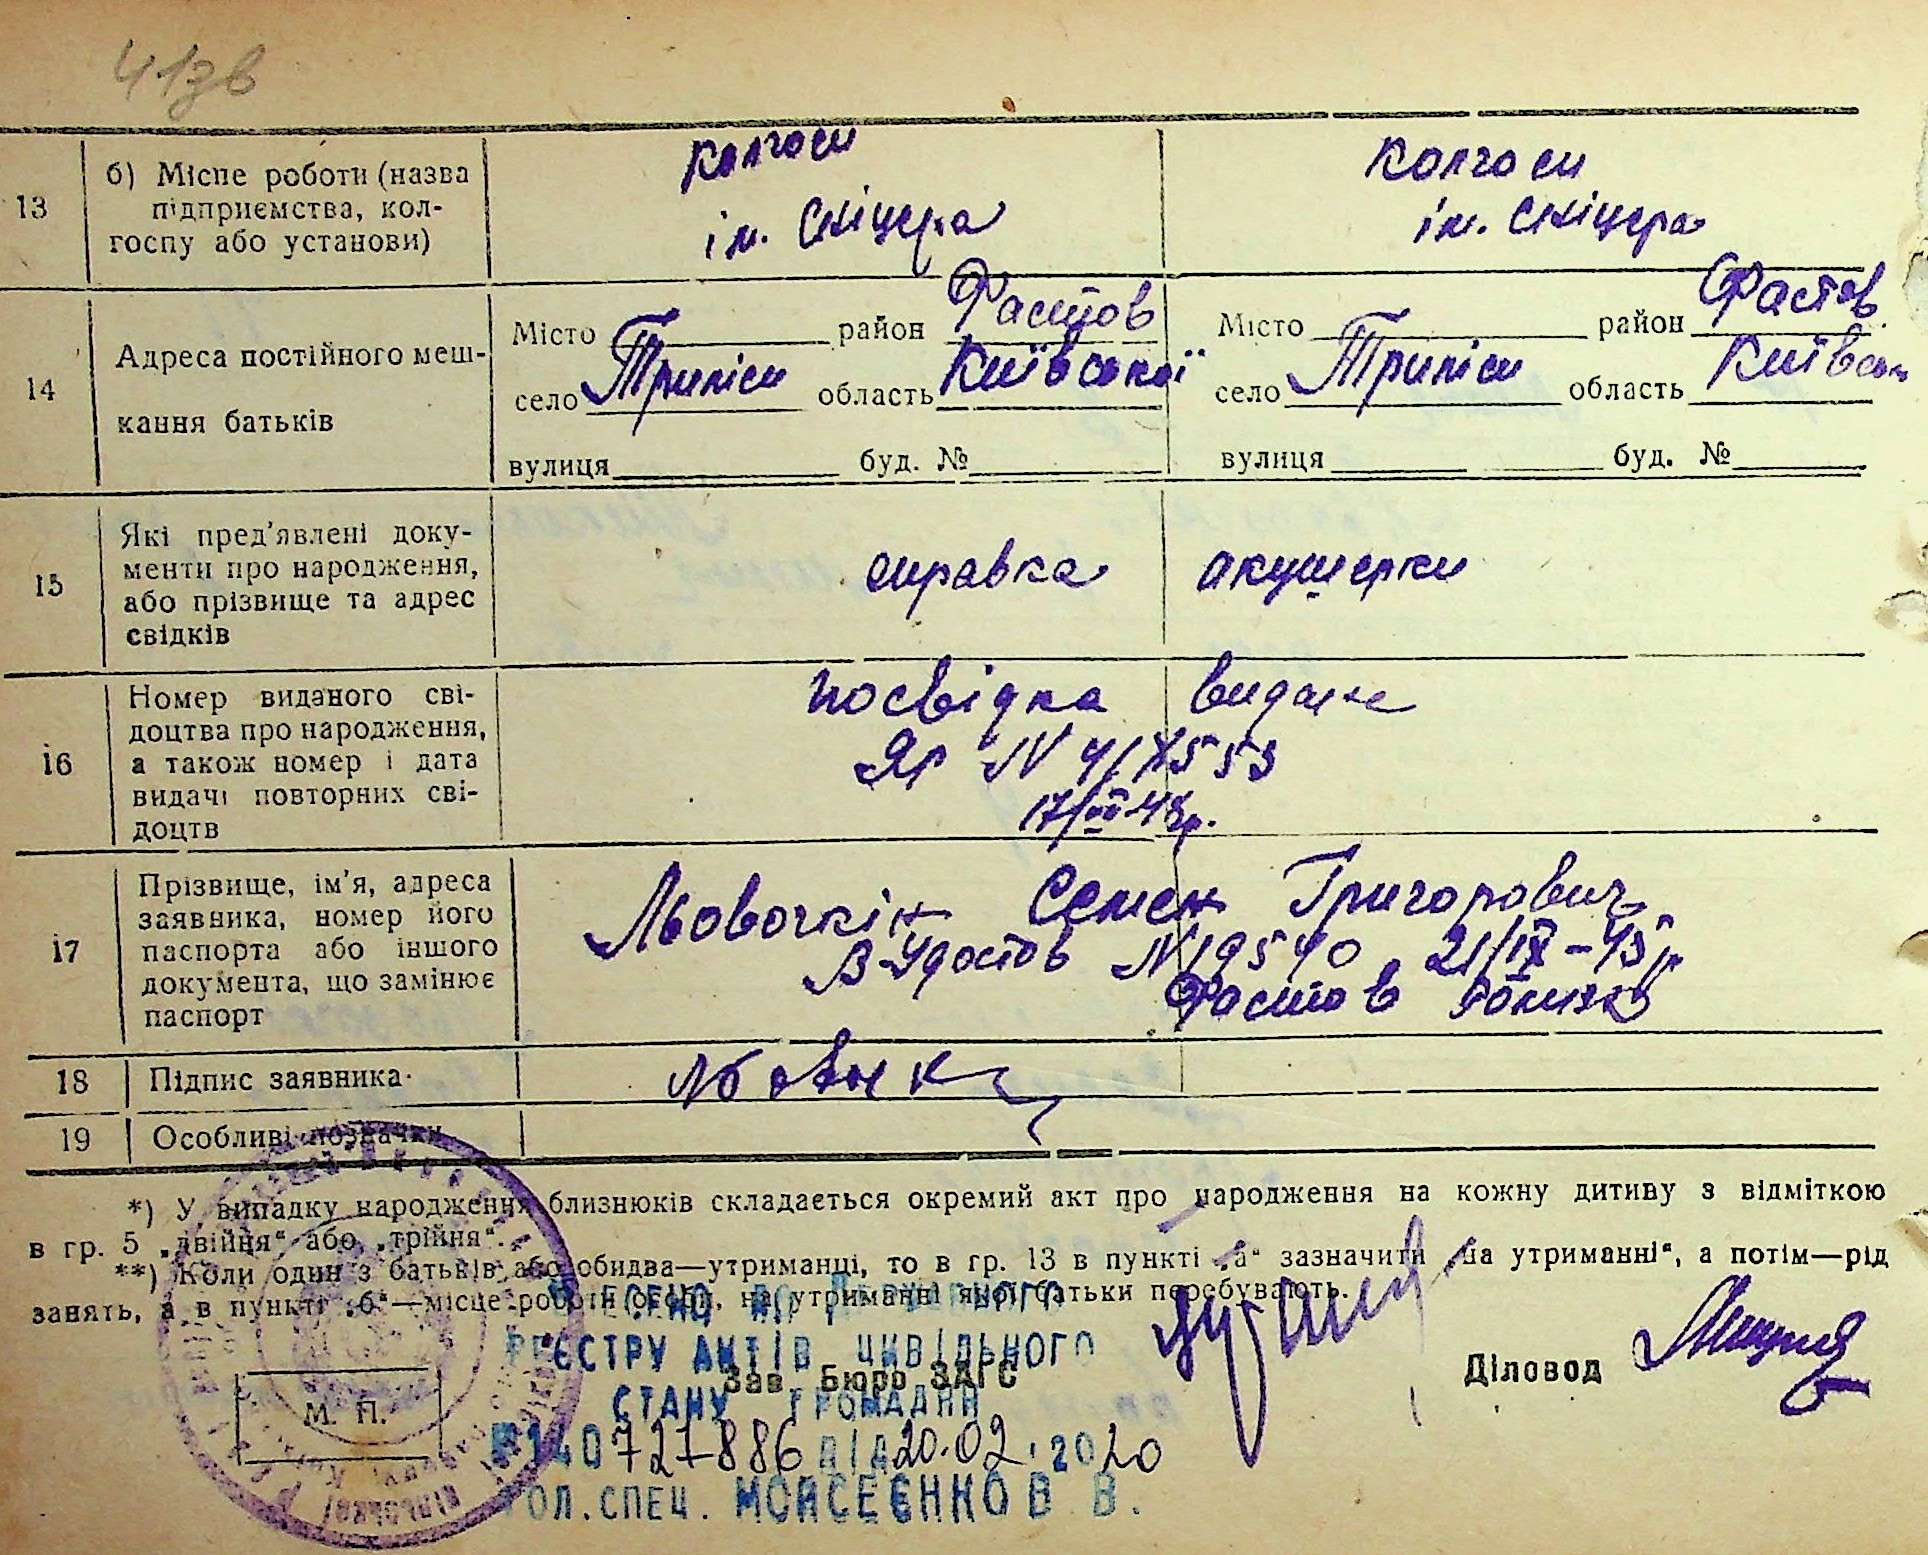 41зв
13
б) Місце роботи (назва
підприємства, кол-
госпу або установи)
колгосп
ім. Сніцера
колгосп
ім. Сніцера
14
Адреса постійного меш-
кання батьків
Місто район Фастов
село Трипіси область Київської
вулиця буд. №
Місто район Фастов
село Трипіси область Київсь
вулиця буд. №
15
Які пред'явлені доку-
менти про народження,
або прізвище та адрес
свідків
справка акушерки
16
Номер виданого сві-
доцтва про народження,
а також номер і дата
видачі повторних сві-
доцтв
посвідка видане
N
48р.
17
Прізвище, ім'я, адреса
заявника, номер його
паспорта або іншого
документа, що замінює
паспорт
Львовчкін Семен Григорович
N 19590 21/IX-45р
Фастов
18
Підпис заявника
19
Особливі позначки
*) У випадку народження близнюків складається окремий акт про народження на кожну дитиву з відміткою
в гр. 5 „двійня“ або „трійня“.
**) Коли один з батьків або обидва—утриманці, то в гр. 13 в пункті „а“ зазначити „на утриманні“, а потім—рід
занять, а в пункті „б“—місце роботи особи, на утриманні якої батьки перебувають.
ВНЕСЕНО ДО ДЕРЖАВНОГО
РЕЄСТРУ АКТІВ ЦИВІЛЬНОГО
Зав. Бюро ЗАГС
Діловод
СТАНУ ГРОМАДЯН
М. П.
№140727886 від 20.02.2020
ГОЛ.СПЕЦ. МОЙСЕЄНКОВ В.